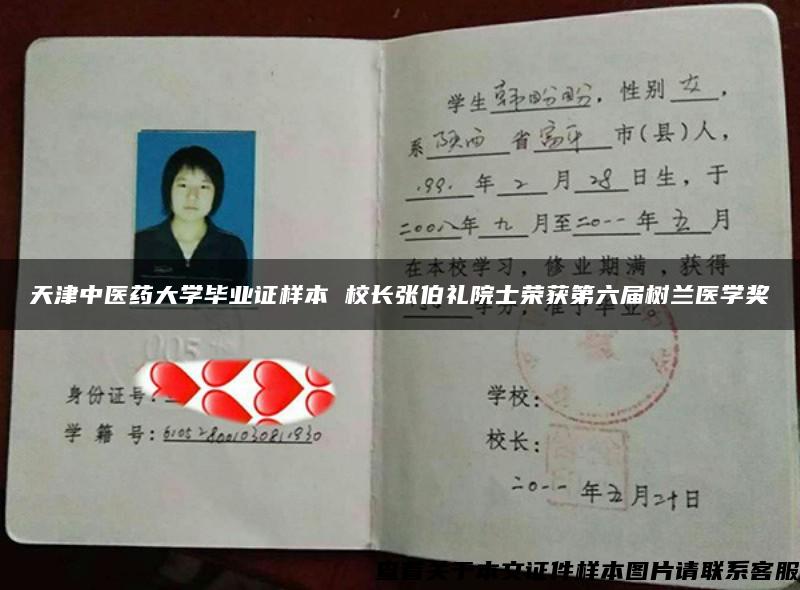 学生韩盼盼，性别女，
系陕西省富平市(县)人，
1991年2月28日生，于
二00八年九月至二0一一年五月
在本校学习，修业期满，获得
学分，准予毕业。
天津中医药大学毕业证样本 校长张伯礼院士荣获第六届树兰医学奖
005
身份证号:
学 籍 号:
学校:
校长:
二0一一年五月二十日
查看关于本文证件样本图片请联系客服